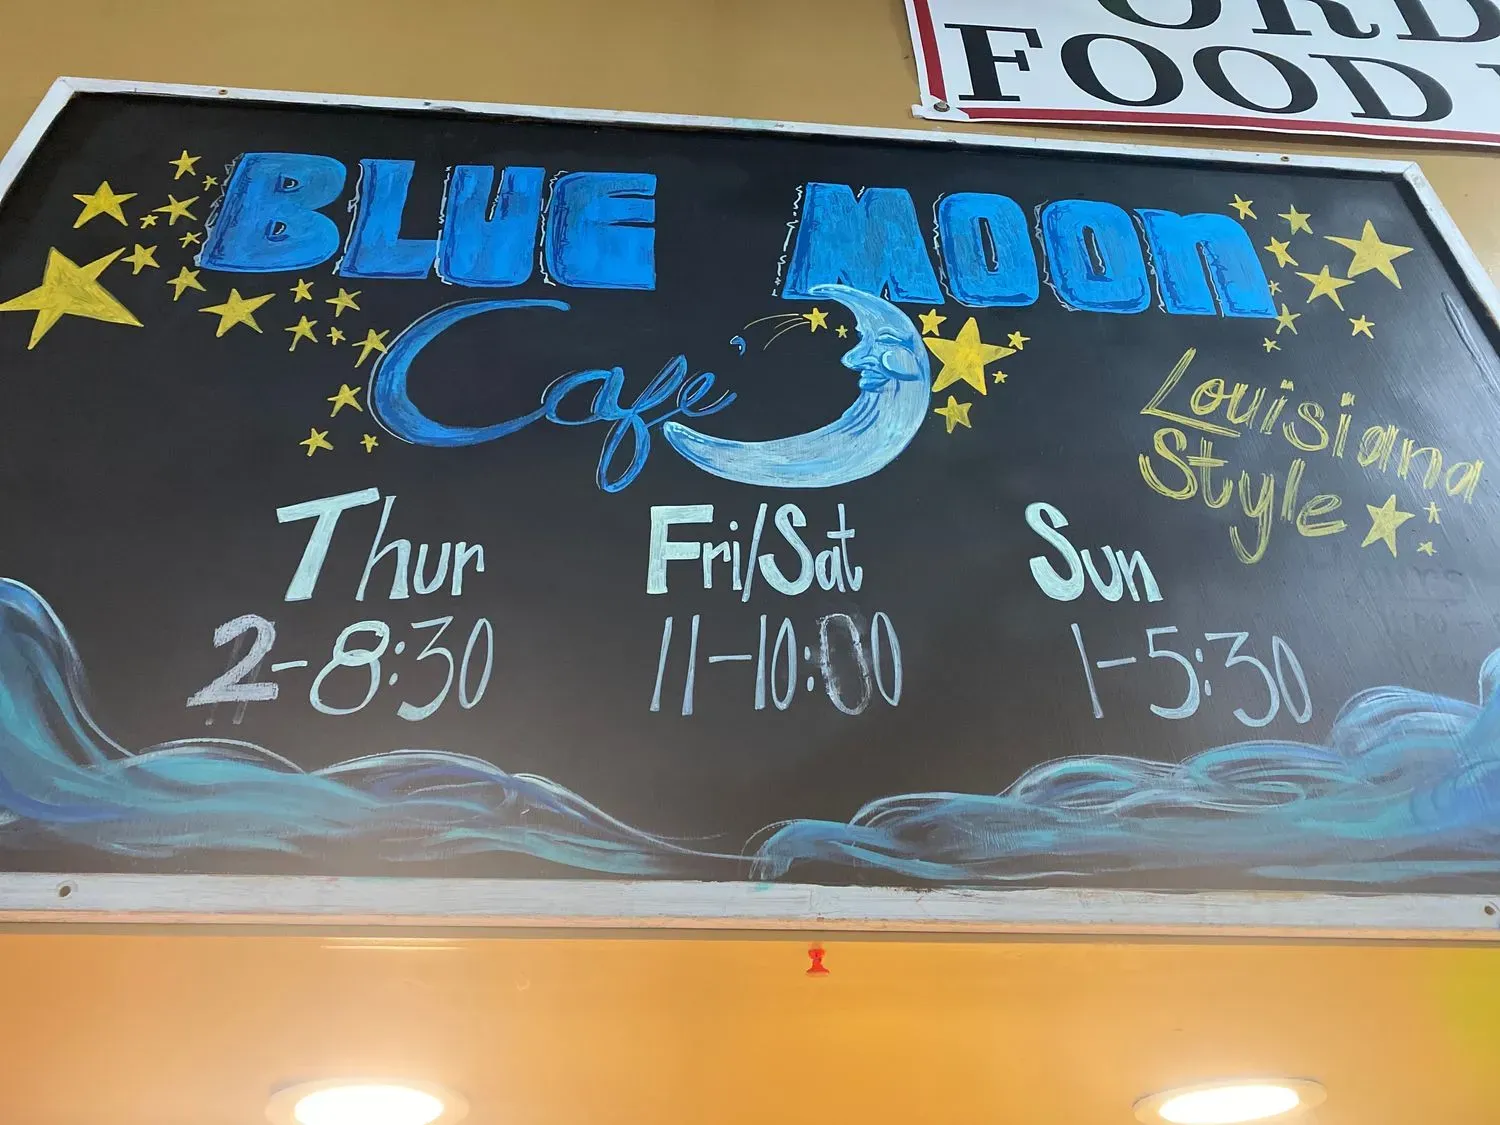 ORD
FOOD
BLUE MOON
Café
Louisiana
Style
Thur Fri/Sat Sun
2-8:30 11-10:00 1-5:30